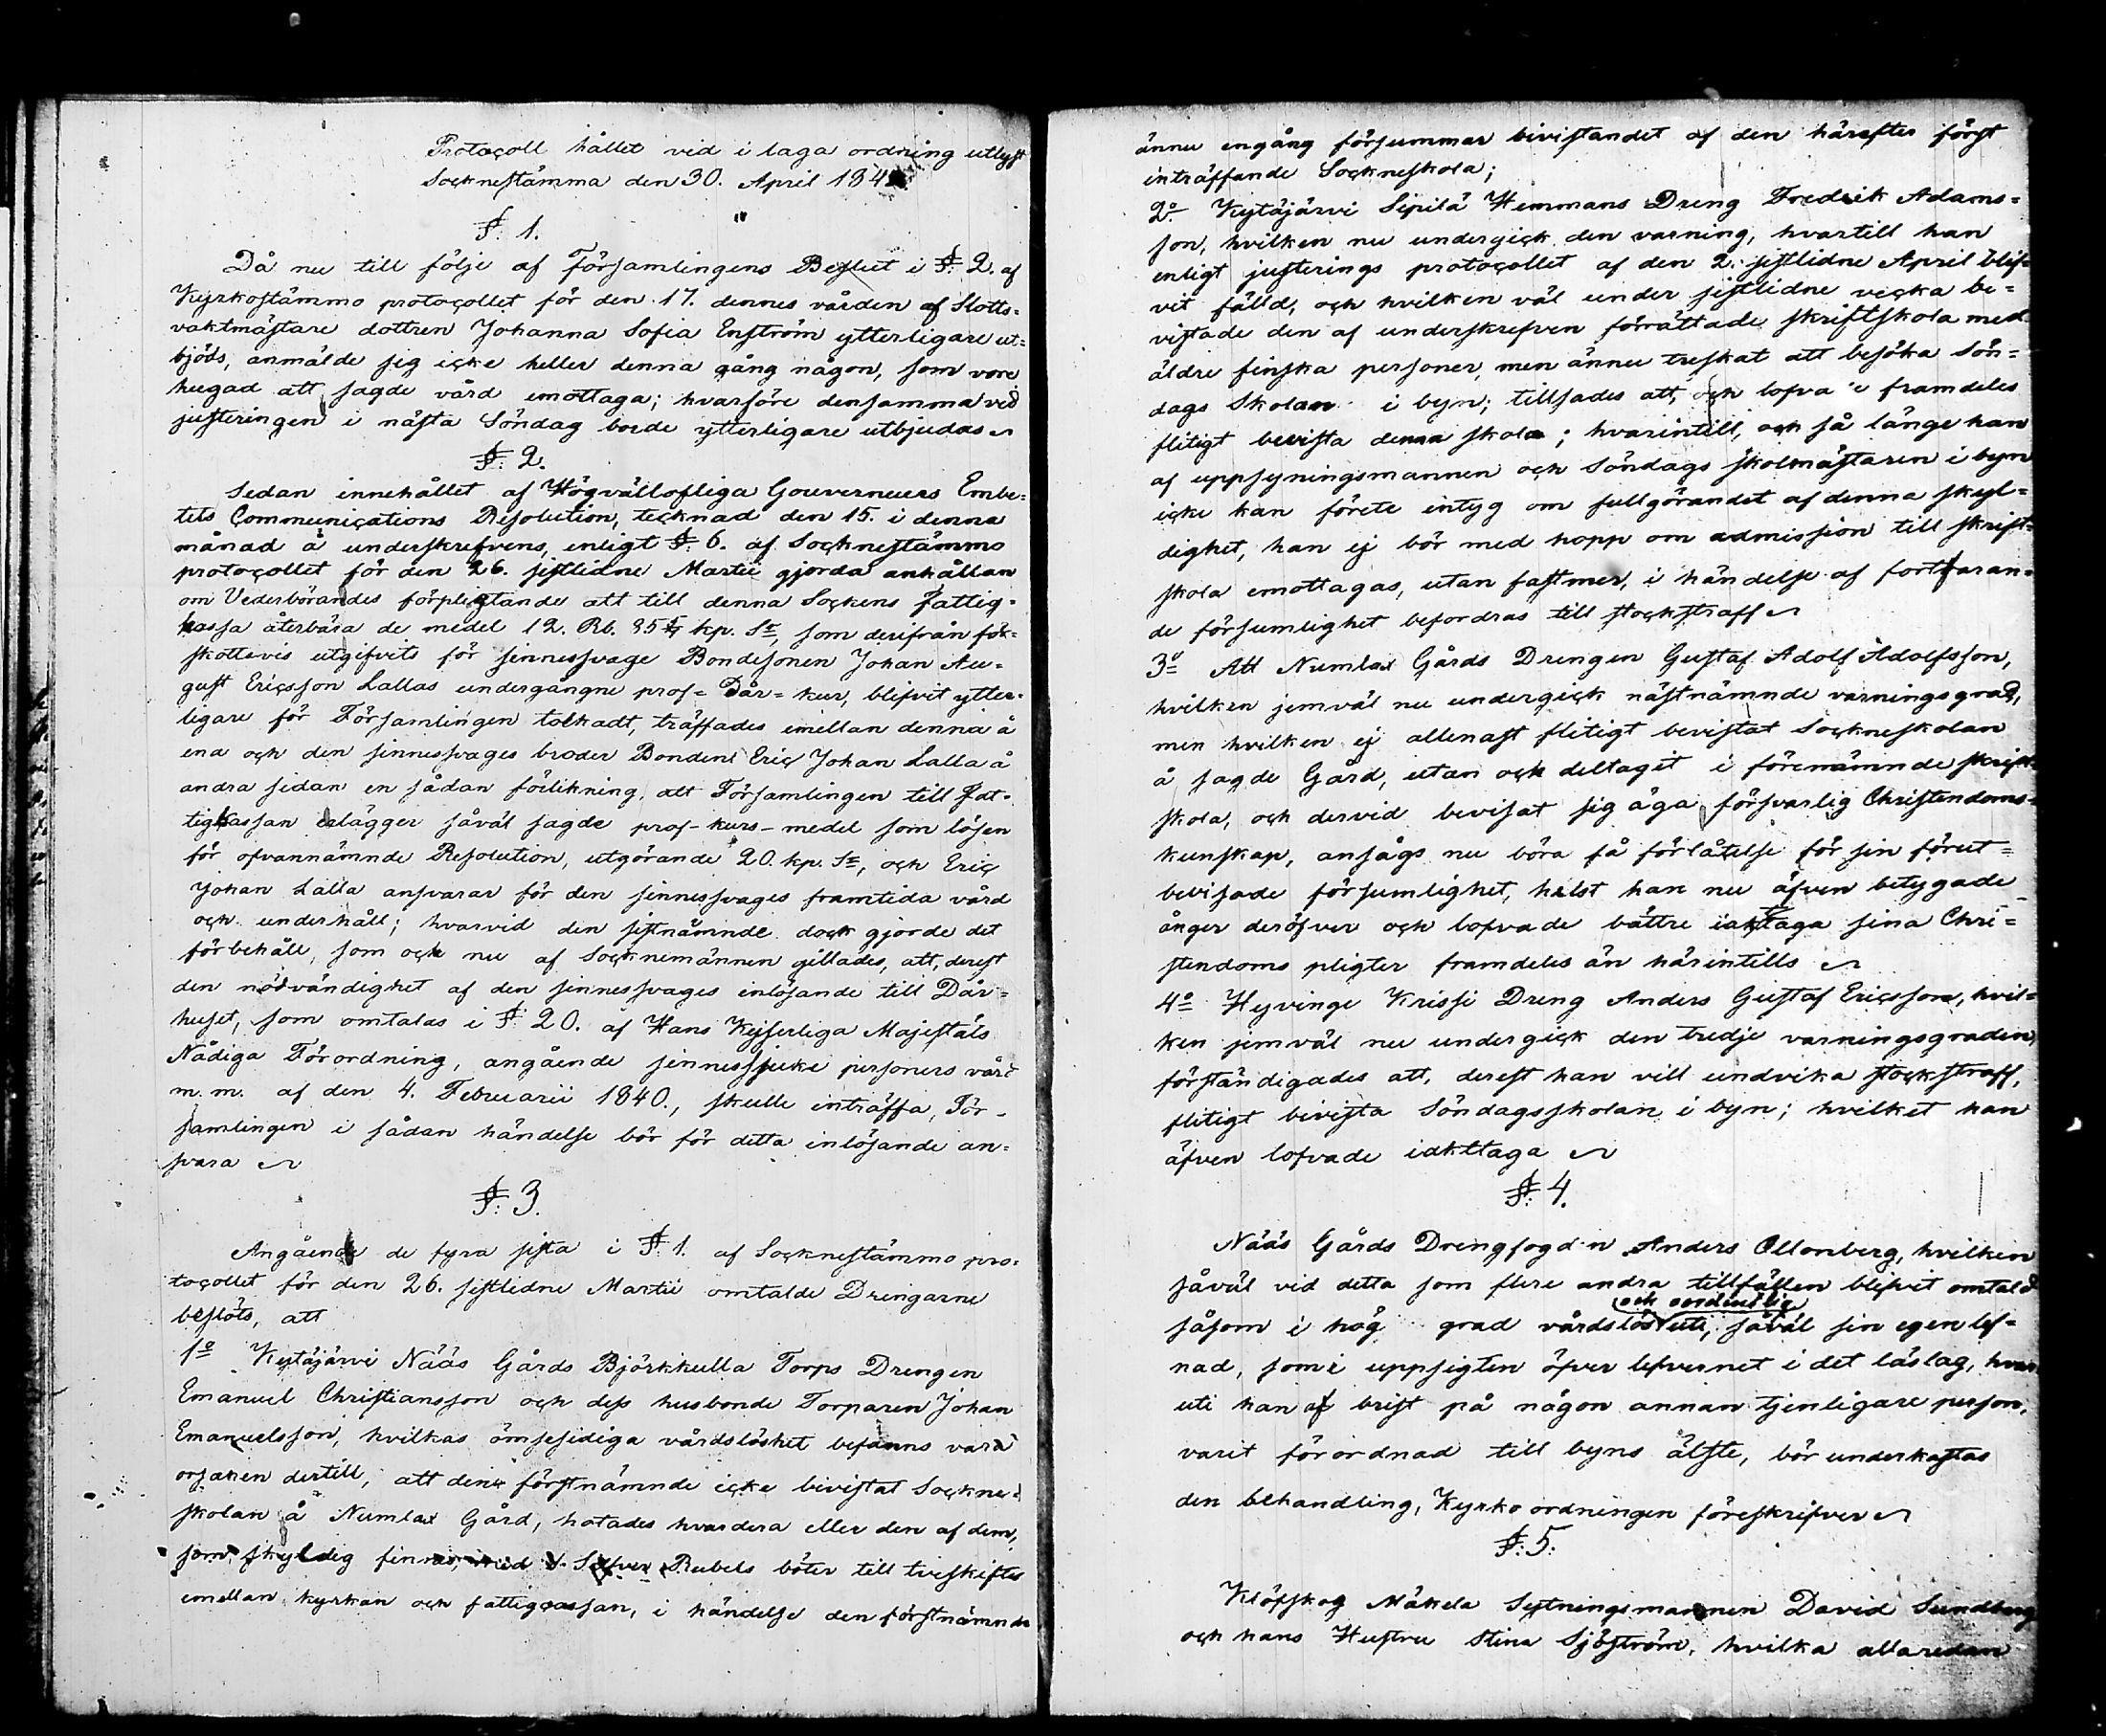 Protocoll hållet vid i laga ordning utlyst
Socknestämma den 30. April 184
§: 1.
Då nu till följe af Församlingens Beslut i §: 2. af
Kyrkostämmo protocollet för den 17. dennes vården af Slotts-
vaktmästare dottren Johanna Sofia Enström ytterligare ut-
bjöds, anmälde sig icke heller denna gång någon, som vore
hugad att sagde vård emottaga; hvarföre densamma vid
justeringen i nästa Söndag borde ytterligare utbjudas
§: 2.
Sedan innehållet af Högvällofliga Gouverneurs Embe-
tets Communications Resolution, tecknad den 15. i denna
månad å underskrefvens, enligt §: 6. af Socknestämmo
protocollet för den 26. sistlidne Martii gjorda anhållan
om Vederbörandes förpligtande att till denna Sockens fattig-
kassa återbära de medel 12. Rb. 85 kp. Sr, som derifrån för-
skottsvis utgifvits för sinnessvage Bondesonen Johan Au-
gust Ericsson Lallas undergångne prof- Dår- kur, blifvit ytter-
ligare för Församlingen tolkadt, träffades emellan denna å
ena och den sinnessvages broder Bonden Eric Johan Lalla å
andra sidan en sådan förlikning, att Församlingen till fat-
tigkassan erlägger såväl sagde prof-kurs-medel som lösen
för ofvannämnde Resolution, utgörande 20. kp. Sr, och Eric
Johan Lalla ansvarar för den sinnessvages framtida vård
och underhåll; hvarvid den sistnämnde dock gjorde det
förbehåll, som och nu af Socknemännen gillades, att, derest
den nödvändighet af den sinnessvages inlösande till Dår-
huset, som omtalas i §: 20. af Hans Kejserliga Majestäts
Nådiga Förordning, angående sinnessjuke personers vård
m. m. af den 4. Februarii 1840., skulle inträffa, För-
samlingen i sådan händelse bör för detta inlösande an-
svara
§: 3.
Angående de fyra sista i §: 1. af Socknestämmo pro-
tocollet för den 26. sistlidne Martii omtalde Drengarne
beslöts, att
1o Kytäjärvi Nääs Gårds Björkkulla Torps Drengen
Emanuel Christiansson och dess husbonde Torparen Johan
Emanuelsson, hvilkas ömsesidiga vårdslöshet befanns vara
orsaken dertill, att den förstnämnde icke bevistat Sockne-
skolan å Numlax Gård, hotades hvardera eller den af dem,
som skyldig finnes, med Silfver Rubels böter till tveskiftes
emellan kyrkan och fattigcassan, i händelse den förstnämnde
ännu engång försummar bevistandet af den härefter först
inträffande Sockneskola;
2o Kytäjärvi Sipilä Hemmans Dreng Fredrik Adams-
son, hvilken nu undergick den varning, hvartill han
enligt justerings protocollet af den 2. sistlidne April blif-
vit fälld, och hvilken väl under sistlidne vecka be-
vistade den af underskrefven förrättade skriftskola med
äldre finska personer, men ännu treskat att besöka Sön-
dags Skolan i byn; tillsades att, och lofva framdeles
flitigt bevista denna skola; hvarintill, och så länge han
af uppsyningsmannen och Söndags skolmästaren i byn
icke kan förete intyg om fullgörandet af denna skyl-
dighet, han ej bör med hopp om admission till skrift-
skola emottagas, utan fastmer, i händelse af fortfaran-
de försumlighet befordras till stockstraff
3o Att Numlax Gårds Drengen Gustaf Adolf Adolfsson,
hvilken jemväl nu undergick nästnämnde varningsgrad,
men hvilken ej allenast flitigt bevistat Sockneskolan
å sagde Gård, utan och deltagit i förenämnde skrift-
skola, och dervid bevisat sig äga försvarlig Christendoms-
kunskap, ansågs nu böra få förlåtelse för sin förut-
bevisade försumlighet, helst han nu äfven betygade
ånger deröfver och lofvade bättre iakttaga sina Chri-
stendoms pligter framdeles än härintills
4o Hyvinge Krissi Dreng Anders Gustaf Ericsson, hvil-
ken jemväl nu undergick den tredje varningsgraden,
förständigades att, derest han vill undvika stockstraff,
flitigt bevista Söndagsskolan i byn; hvilket han
äfven lofvade iakttaga
§: 4.
Nääs Gårds Drengfogden Anders Ollonberg, hvilken
såväl vid detta som flere andra tillfällen blifvit omtald
och oordentlig
såsom i hög grad vårdslös uti, såväl sin egen lef-
nad, som i uppsigten öfver lefvernet i det läslag, hvar
uti han af brist på någon annan tjenligare person,
varit förordnad till byns älste, bör underkastas
den behandling, Kyrko ordningen föreskrifver
§: 5.
Klöfskog Mäkelä Sytningsmannen David Sundberg
och hans Hustru Stina Sjöström, hvilka allaredan